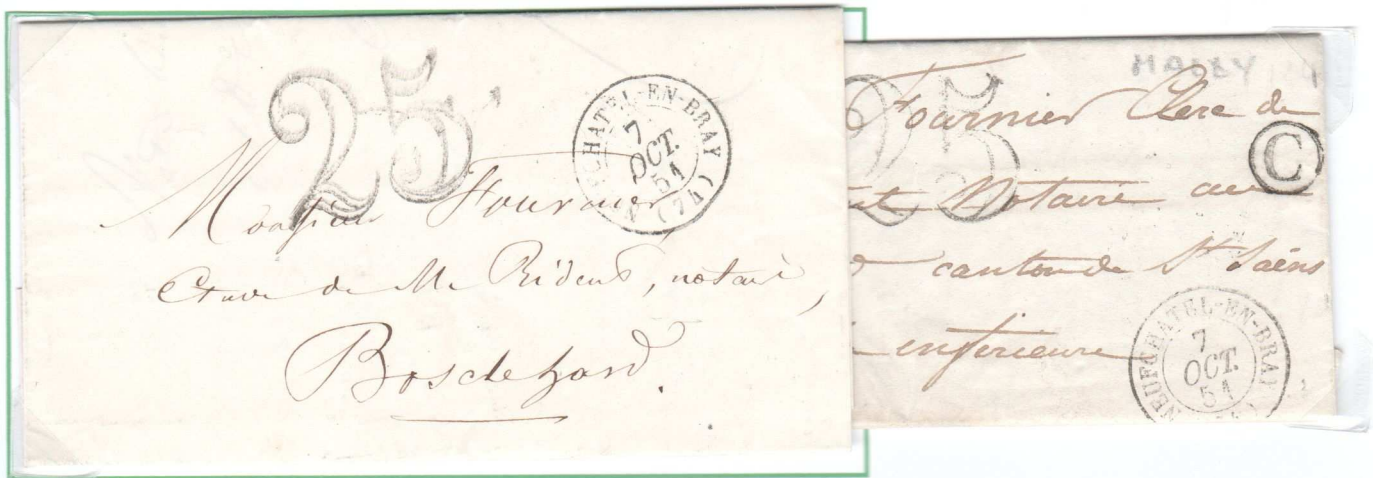 25
NEUFCHATEL-EN-BRAY (74)
7
OCT.
51
Monsieur Fournier,
Etude de Me Rident, notaire,
Bosclehard.
MASSY
25
Fournier Clerc de
C
Notaire au
canton de St Saëns
inférieure
NEUFCHATEL-EN-BRAY
7
OCT.
51